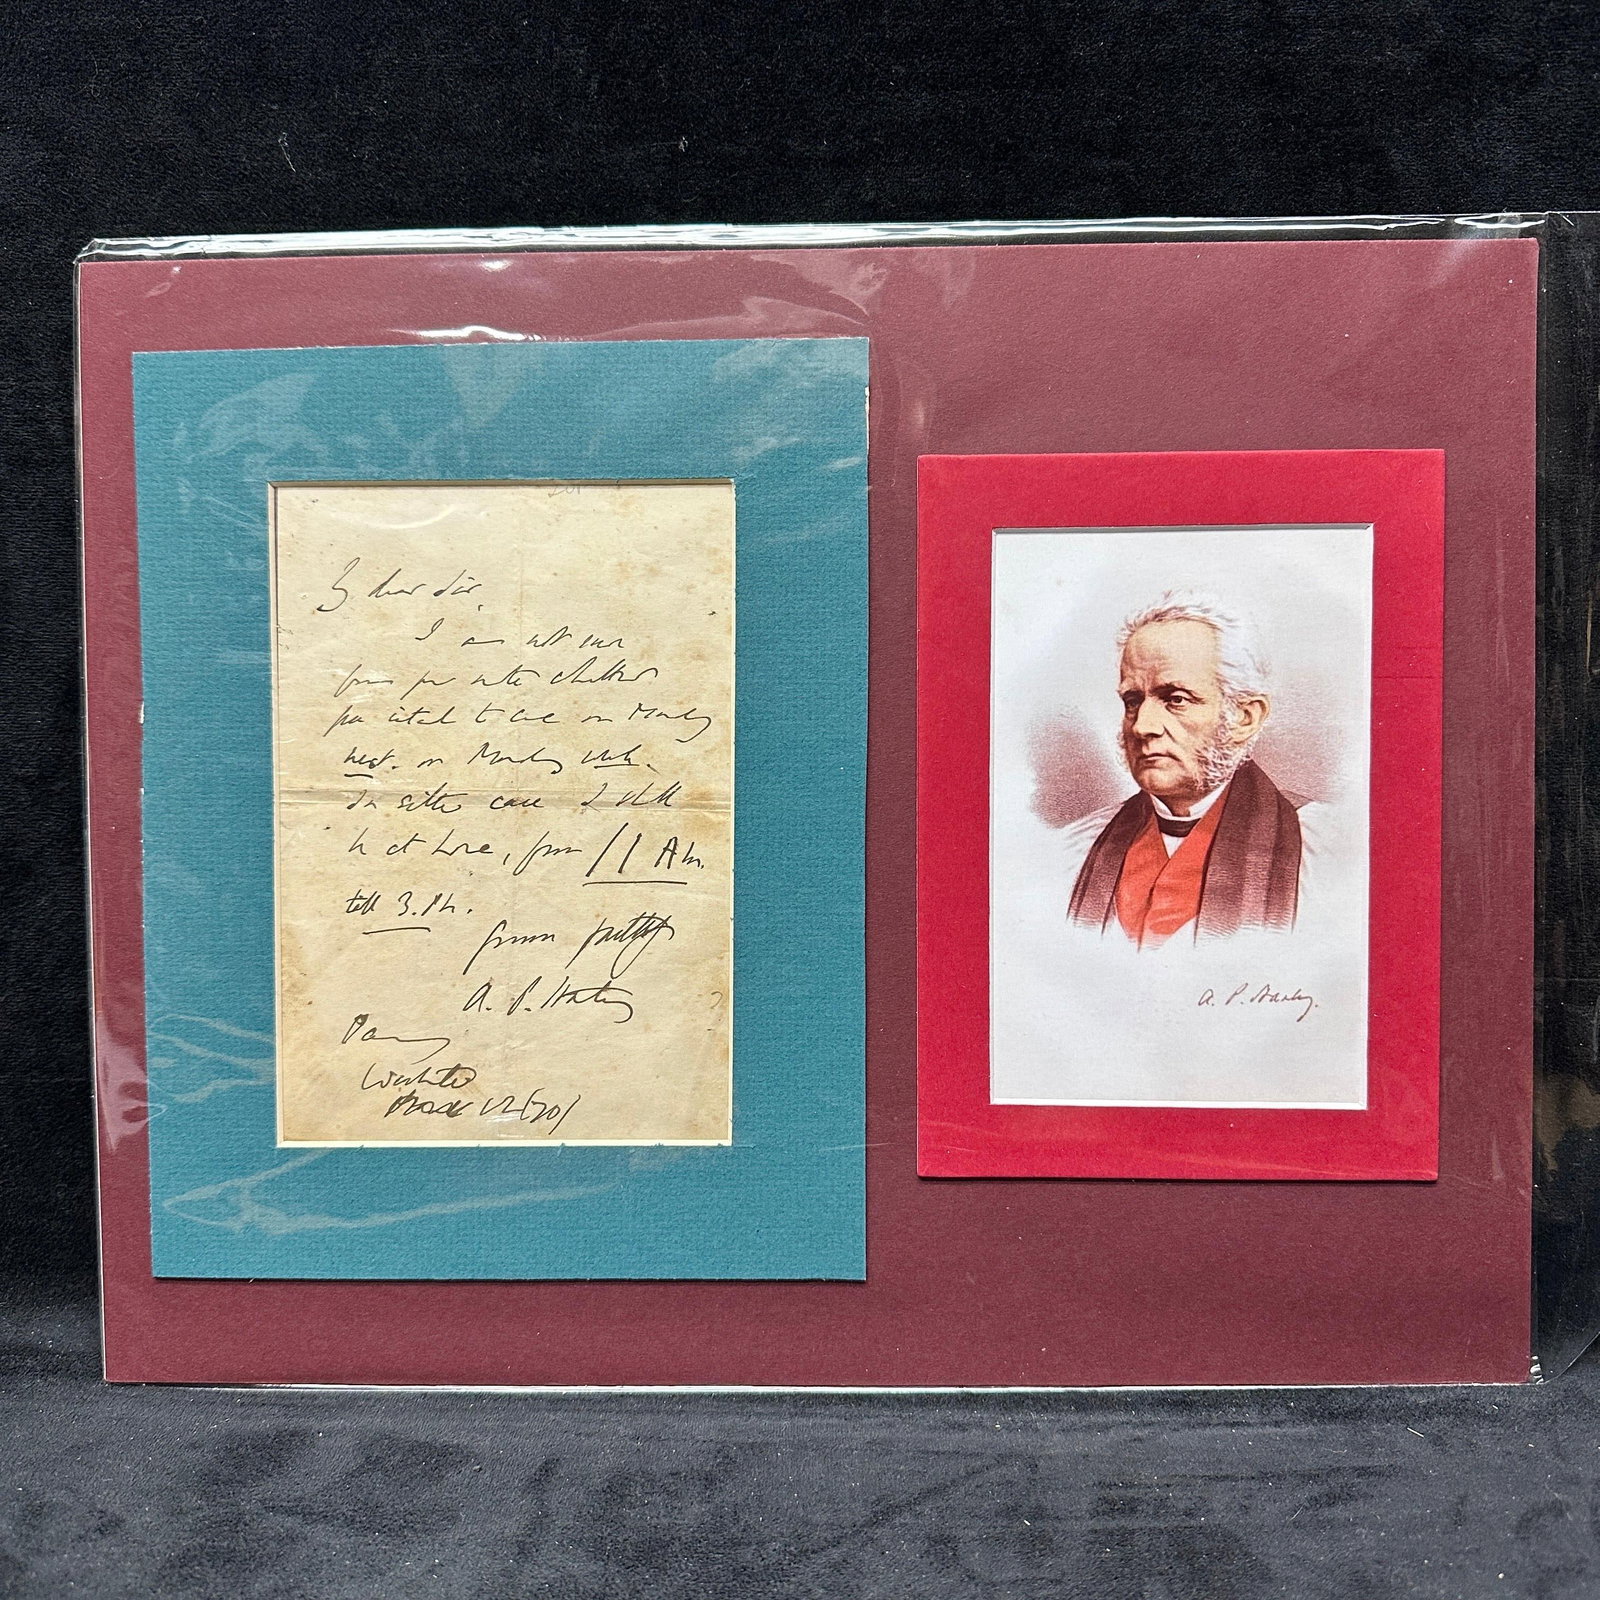 My dear Sir,
I am not sure
from your note whether
you intend to come on Monday
next. or Monday week.
In either case I shall
be at home, from 11 A.m.
till 3. P.m.
yours faithfully
A. P. Stanley
Deanery
Westminster
March 12/70/
A. P. Stanley.